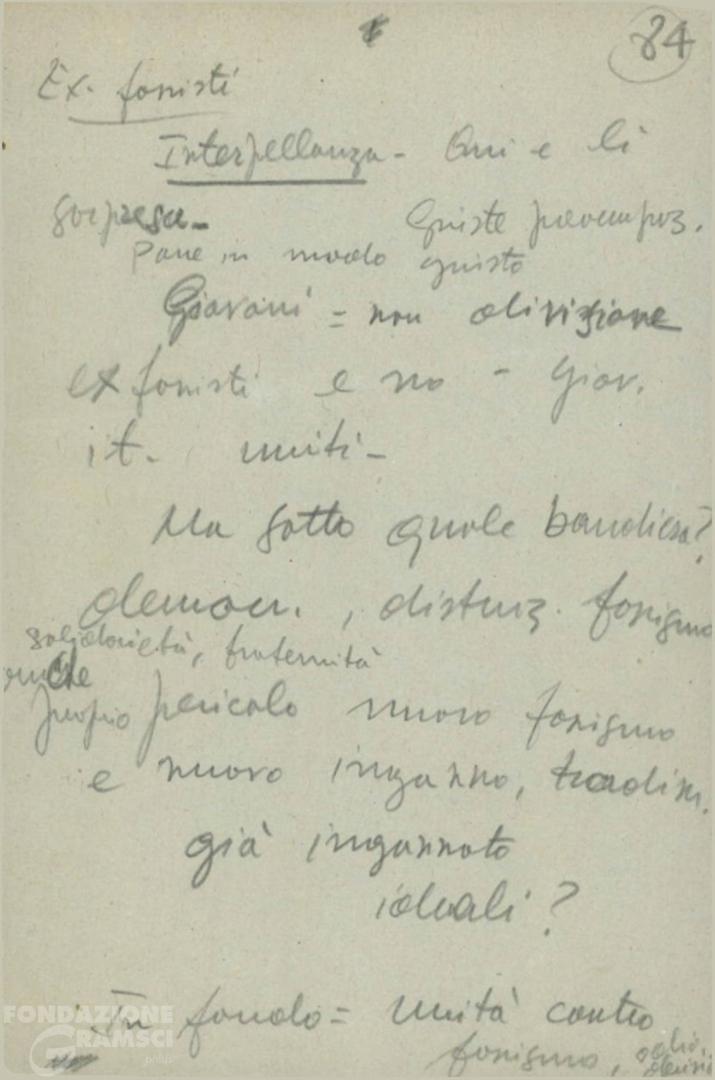 84
Ex-fascisti
Interpellanza - Qui e lì
sorpresa - Giuste preoccupaz.
Porre in modo giusto
Giovani = non divisione
ex fascisti e no - Giov.
it. uniti -
Ma sotto quale bandiera?
democr. , distruz. fascismo
solidarietà, fraternità
anche
proprio pericolo nuovo fascismo
e nuovo inganno, tradim.
già ingannato
ideali?
In fondo = unità contro
fascismo, odio,
FONDAZIONE
GRAMSCI